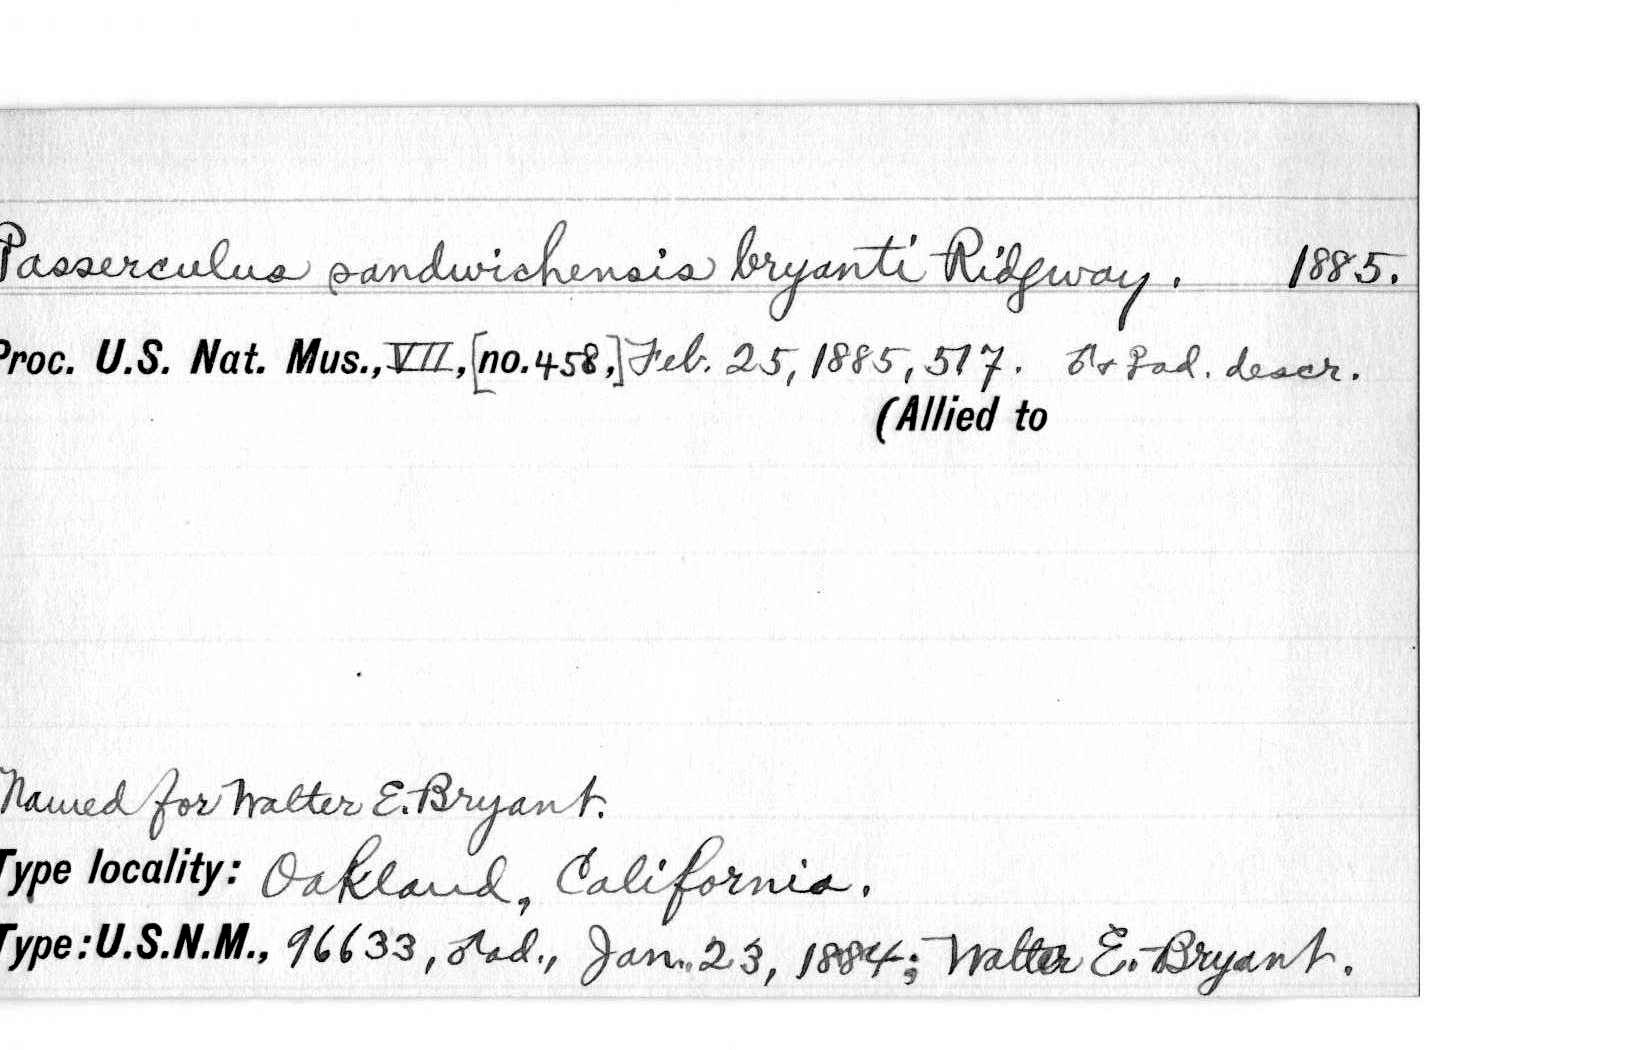 Passerculus sandwichensis bryanti Ridgway. 1885.
Proc. U.S. Nat. Mus., VII, [no. 458,] Feb. 25, 1885, 517. ♂ + ♀ad. descr.
(Allied to
Named for Walter E. Bryant.
Type locality: Oakland, California.
Type: U.S.N.M., 96633, ♂ad., Jan. 23, 1884; Walter E. Bryant.